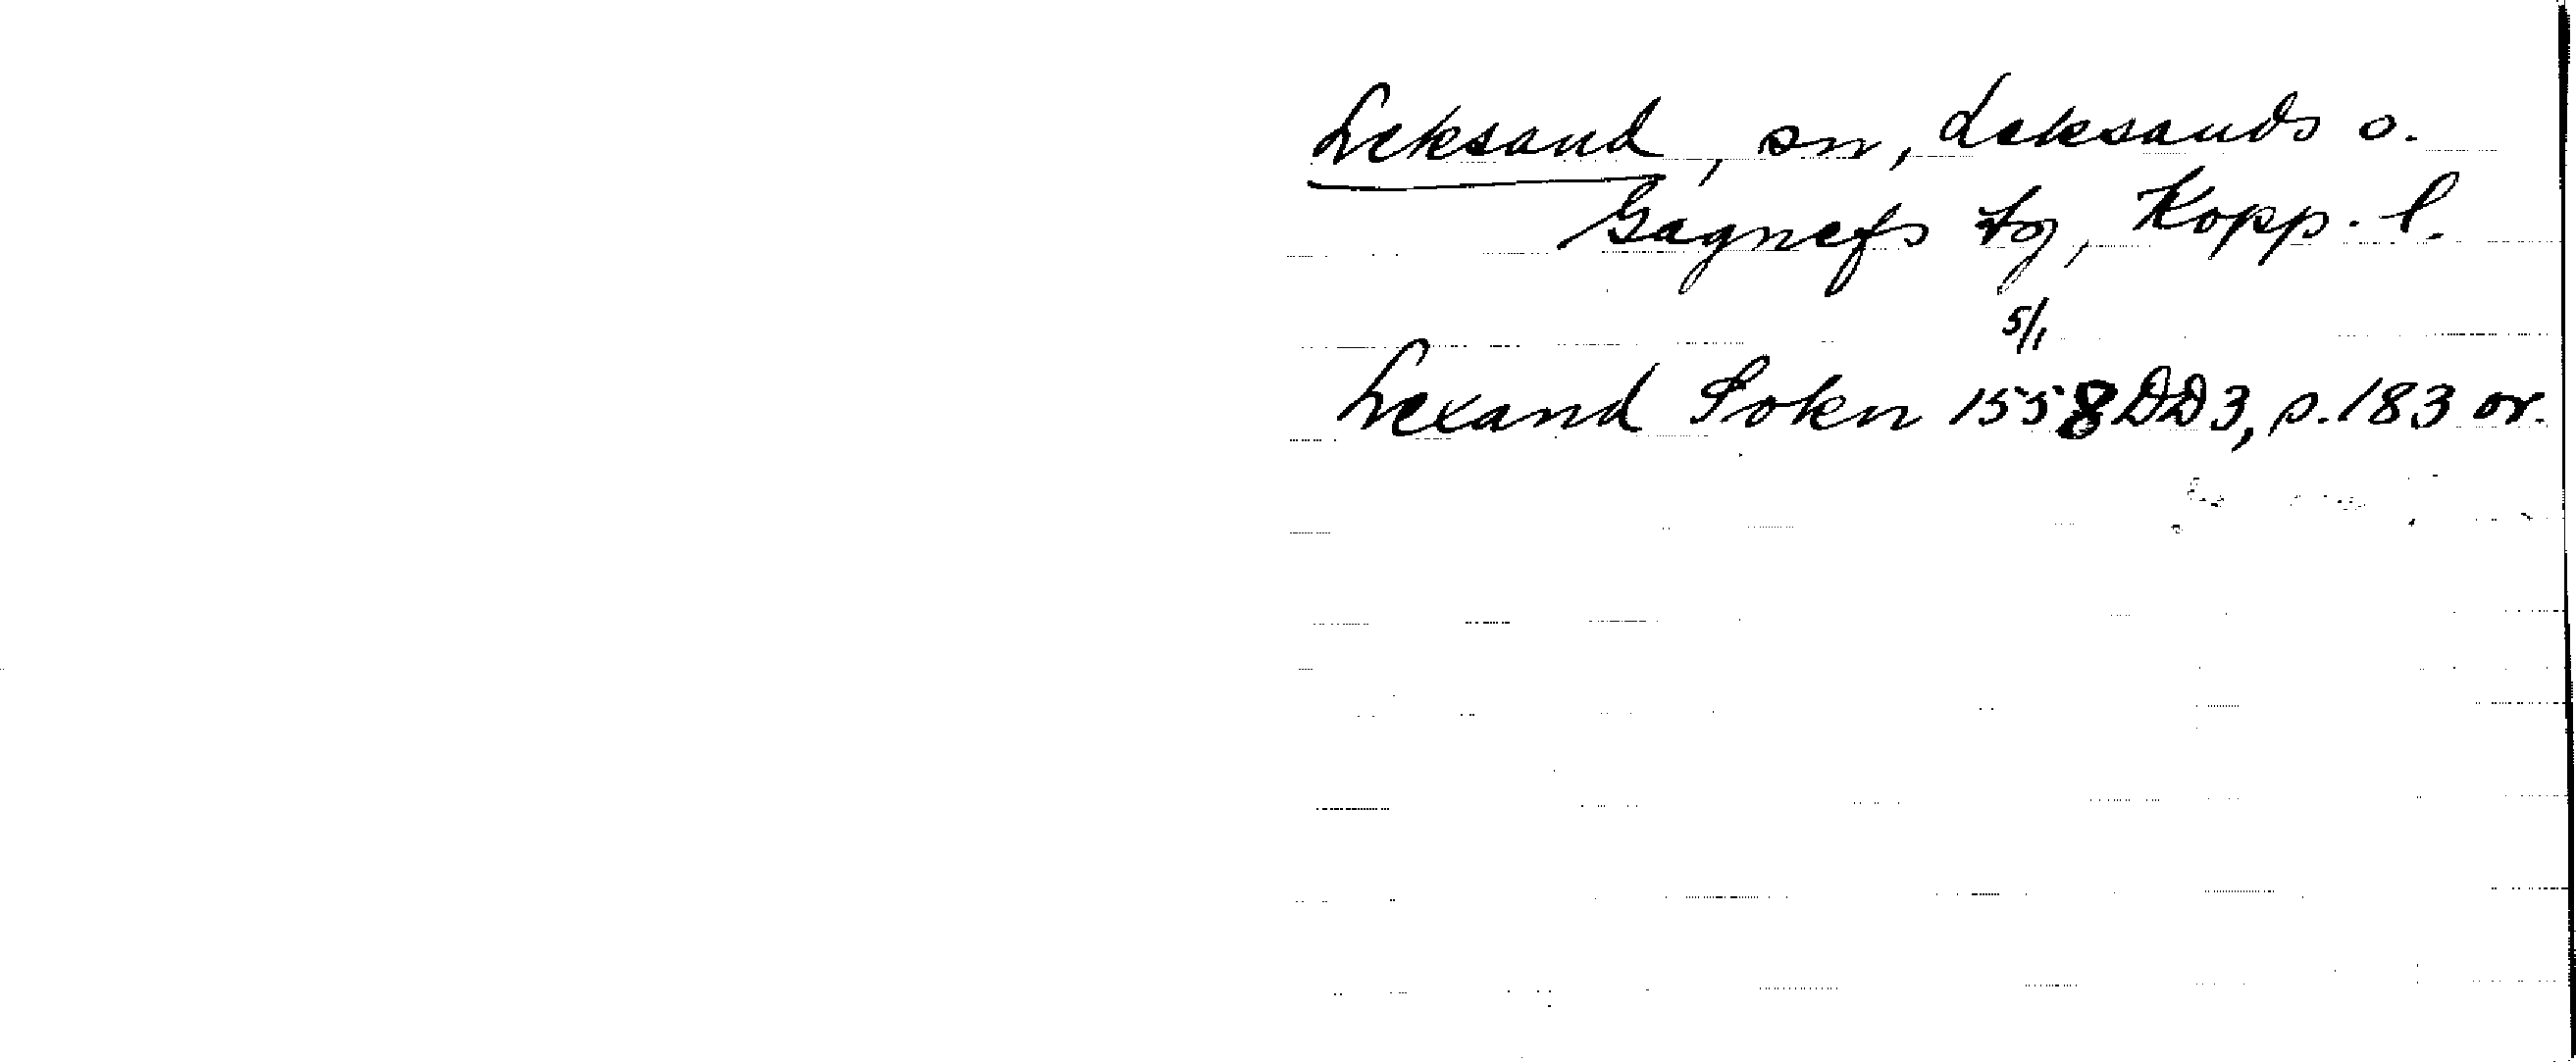 Leksand, sn, Leksands o.
Gagnefs tg, Kopp. l.
5/1
Lexand Sokn 1558 DD3, p. 183 or.